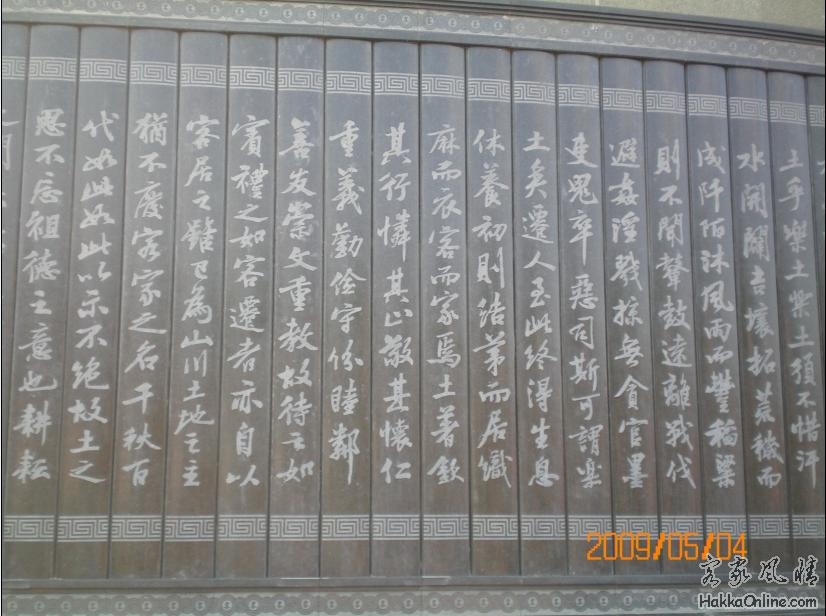 土乎樂土樂土須不惜汗
水開闢吉壤拓荒穢而
成阡陌沐風雨而豐稻粱
則不聞鼙鼓遠離戰伐
避姦淫戮掠無貪官墨
吏鬼卒惡司斯可謂樂
土矣遷人至此終得生息
休養初則結茅而居織
麻而衣客而家焉土著欽
其行憐其正敬其懷仁
重義勤儉守份睦鄰
善友崇文重教故待之如
賓禮之如客遷者亦自以
客居之雖已為山川土地之主
猶不廢客家之名千秋百
代如此如此以示不絕故土之
思不忘祖德之意也耕耘
2009/05/04
客家風情
HakkaOnline.com